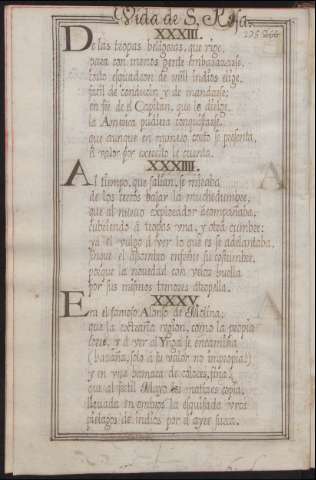 Vida de S. Rosa.
XXXIII.
De las tropas beligeras, que rige,
para con menos gente embarazarse,
corto esquadron de mill indios elige,
facil de conducir, y de mandarse;
en fee de el Capitan, que le dirige,
la America pudiera conquistarse,
que aunque en numero corto se presenta,
el valor por exercito le cuenta.
XXXIIII.
Al tiempo, que salian, se miraba
de los cerros bajar la muchedumbre,
que al nuevo explorador acompañaba,
cubriendo à tropas una, y otra cumbre:
ya el vulgo à ver lo que es se adelantaba,
aunque el assombro enfrene su costumbre,
porque la novedad con voces huella
por sus mismos temores atropella.
XXXV.
Era el famoso Alonso de Molina,
que la extraña region, como la propia
corre, y à ver al Ynga se encamina
(hazaña, solo à su valor no impropia)
y en una hamaca de colores, fina
que al fertil Mayo los matizes copia,
llevada en ombros la esquifada urca
pielagos de indios por el ayre surca.